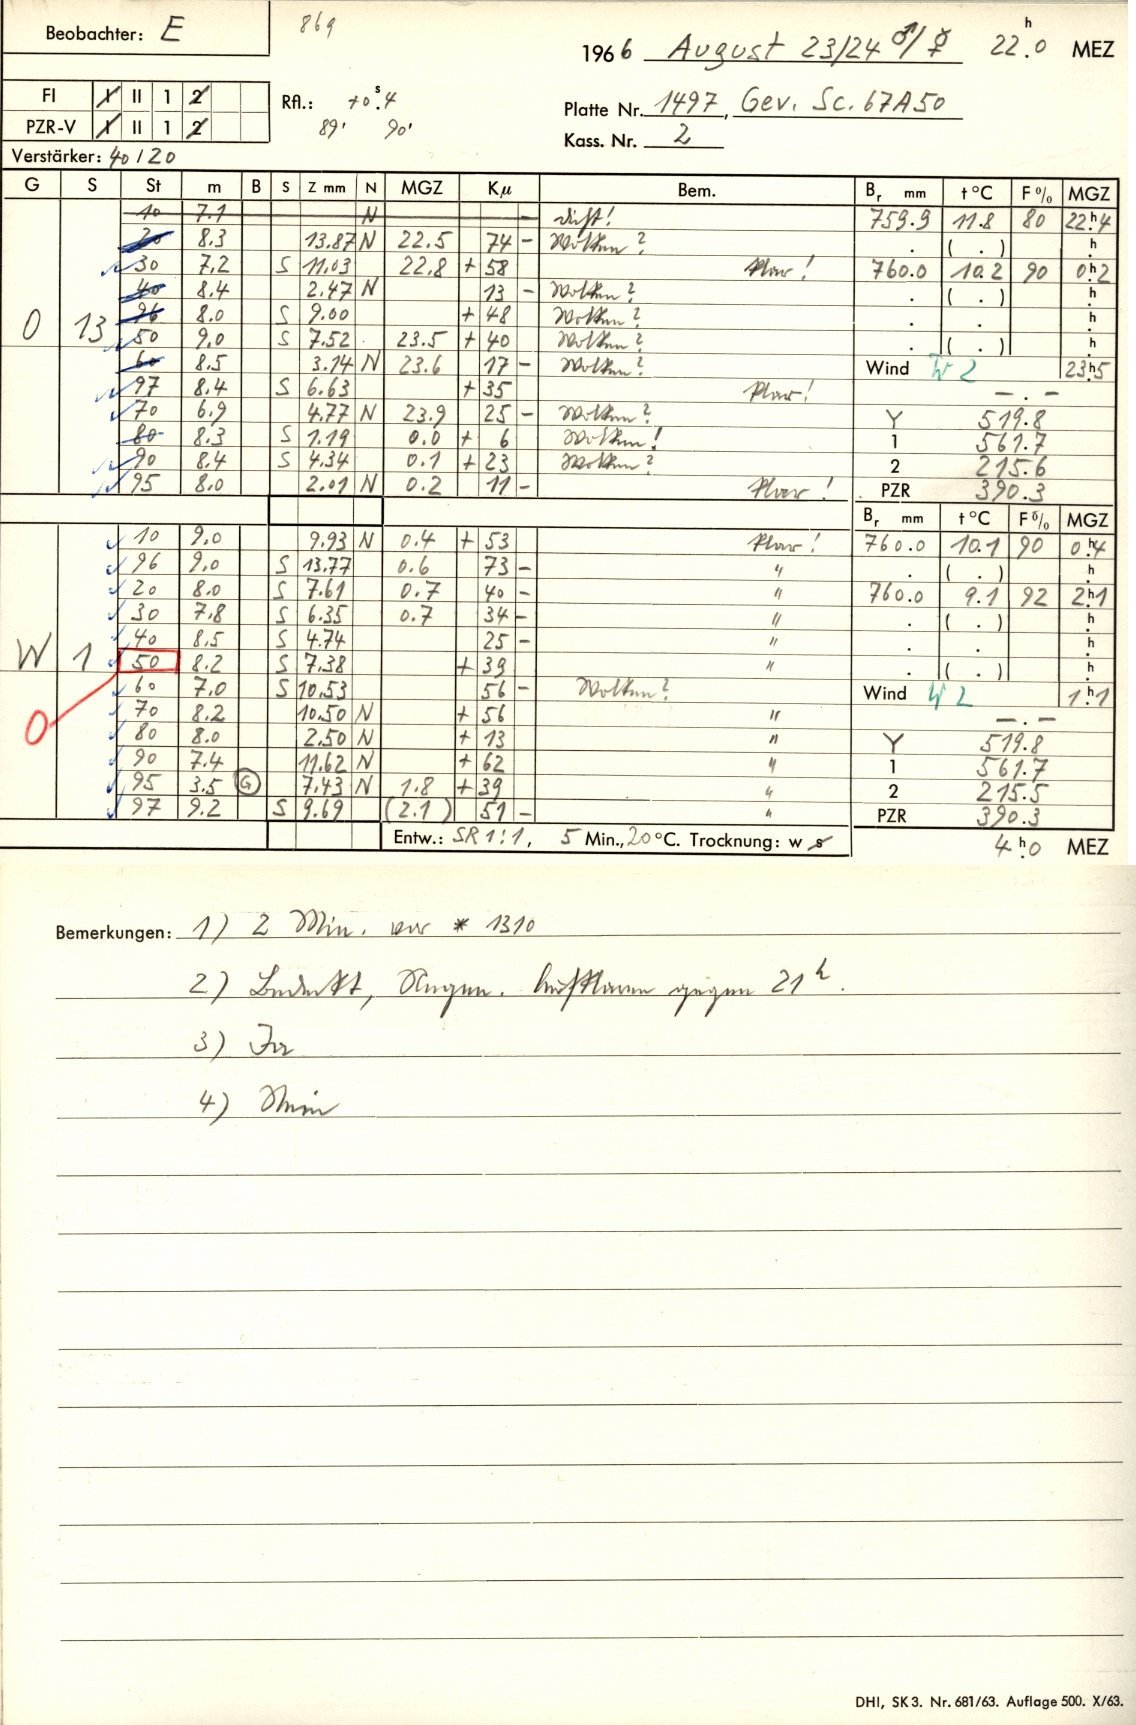 Beobachter: E
869
1966 August 23/24 ♂/☿ 22.h0 MEZ
FI I II 1 2
Rfl.: +0.s4
PZR-V I II 1 2
89' 90'
Platte Nr. 1497, Gev. Sc. 67A50
Kass. Nr. 2
Verstärker: 40/20
G S St m B S Z mm N MGZ Kμ Bem. Br mm t °C F % MGZ
10 7.1 N - dicht! 759.9 11.8 80 22.h4
20 8.3 13.87 N 22.5 74 - Wolken? . ( . ) h.
30 7.2 S 11.03 22.8 + 58 Klar! 760.0 10.2 90 0.h2
40 8.4 2.47 N 13 - Wolken? . ( . ) h.
O 13 96 8.0 S 9.00 + 48 Wolken? . . h.
50 9.0 S 7.52 23.5 + 40 Wolken? . ( . ) h.
60 8.5 3.14 N 23.6 17 - Wolken? Wind W 2 23.h5
97 8.4 S 6.63 + 35 Klar! — . —
70 6.9 4.77 N 23.9 25 - Wolken? Y 519.8
80 8.3 S 1.19 0.0 + 6 Wolken! 1 561.7
90 8.4 S 4.34 0.1 + 23 Wolken? 2 215.6
95 8.0 2.01 N 0.2 11 - Klar! PZR 390.3
Br mm t °C F % MGZ
10 9.0 9.93 N 0.4 + 53 Klar! 760.0 10.1 90 0.h4
96 9.0 S 13.77 0.6 73 - " . ( . ) h.
20 8.0 S 7.61 0.7 40 - " 760.0 9.1 92 2.h1
30 7.8 S 6.35 0.7 34 - " . ( . ) h.
40 8.5 S 4.74 25 - " . . h.
W 1 50 8.2 S 7.38 + 39 " . ( . ) h.
60 7.0 S 10.53 56 - Wolken? Wind W 2 1.h1
O 70 8.2 10.50 N + 56 " — . —
80 8.0 2.50 N + 13 " Y 519.8
90 7.4 11.62 N + 62 " 1 561.7
95 3.5 G 7.43 N 1.8 + 39 " 2 215.5
97 9.2 S 9.69 (2.1) 51 - " PZR 390.3
Entw.: SR 1:1, 5 Min., 20 °C. Trocknung: w s 4.h0 MEZ
Bemerkungen: 1) 2 Min. vor * 1310
2) Bedeckt, Regen. Aufklaren gegen 21h.
3) Ja
4) Nein
DHI, SK 3. Nr. 681/63. Auflage 500. X/63.